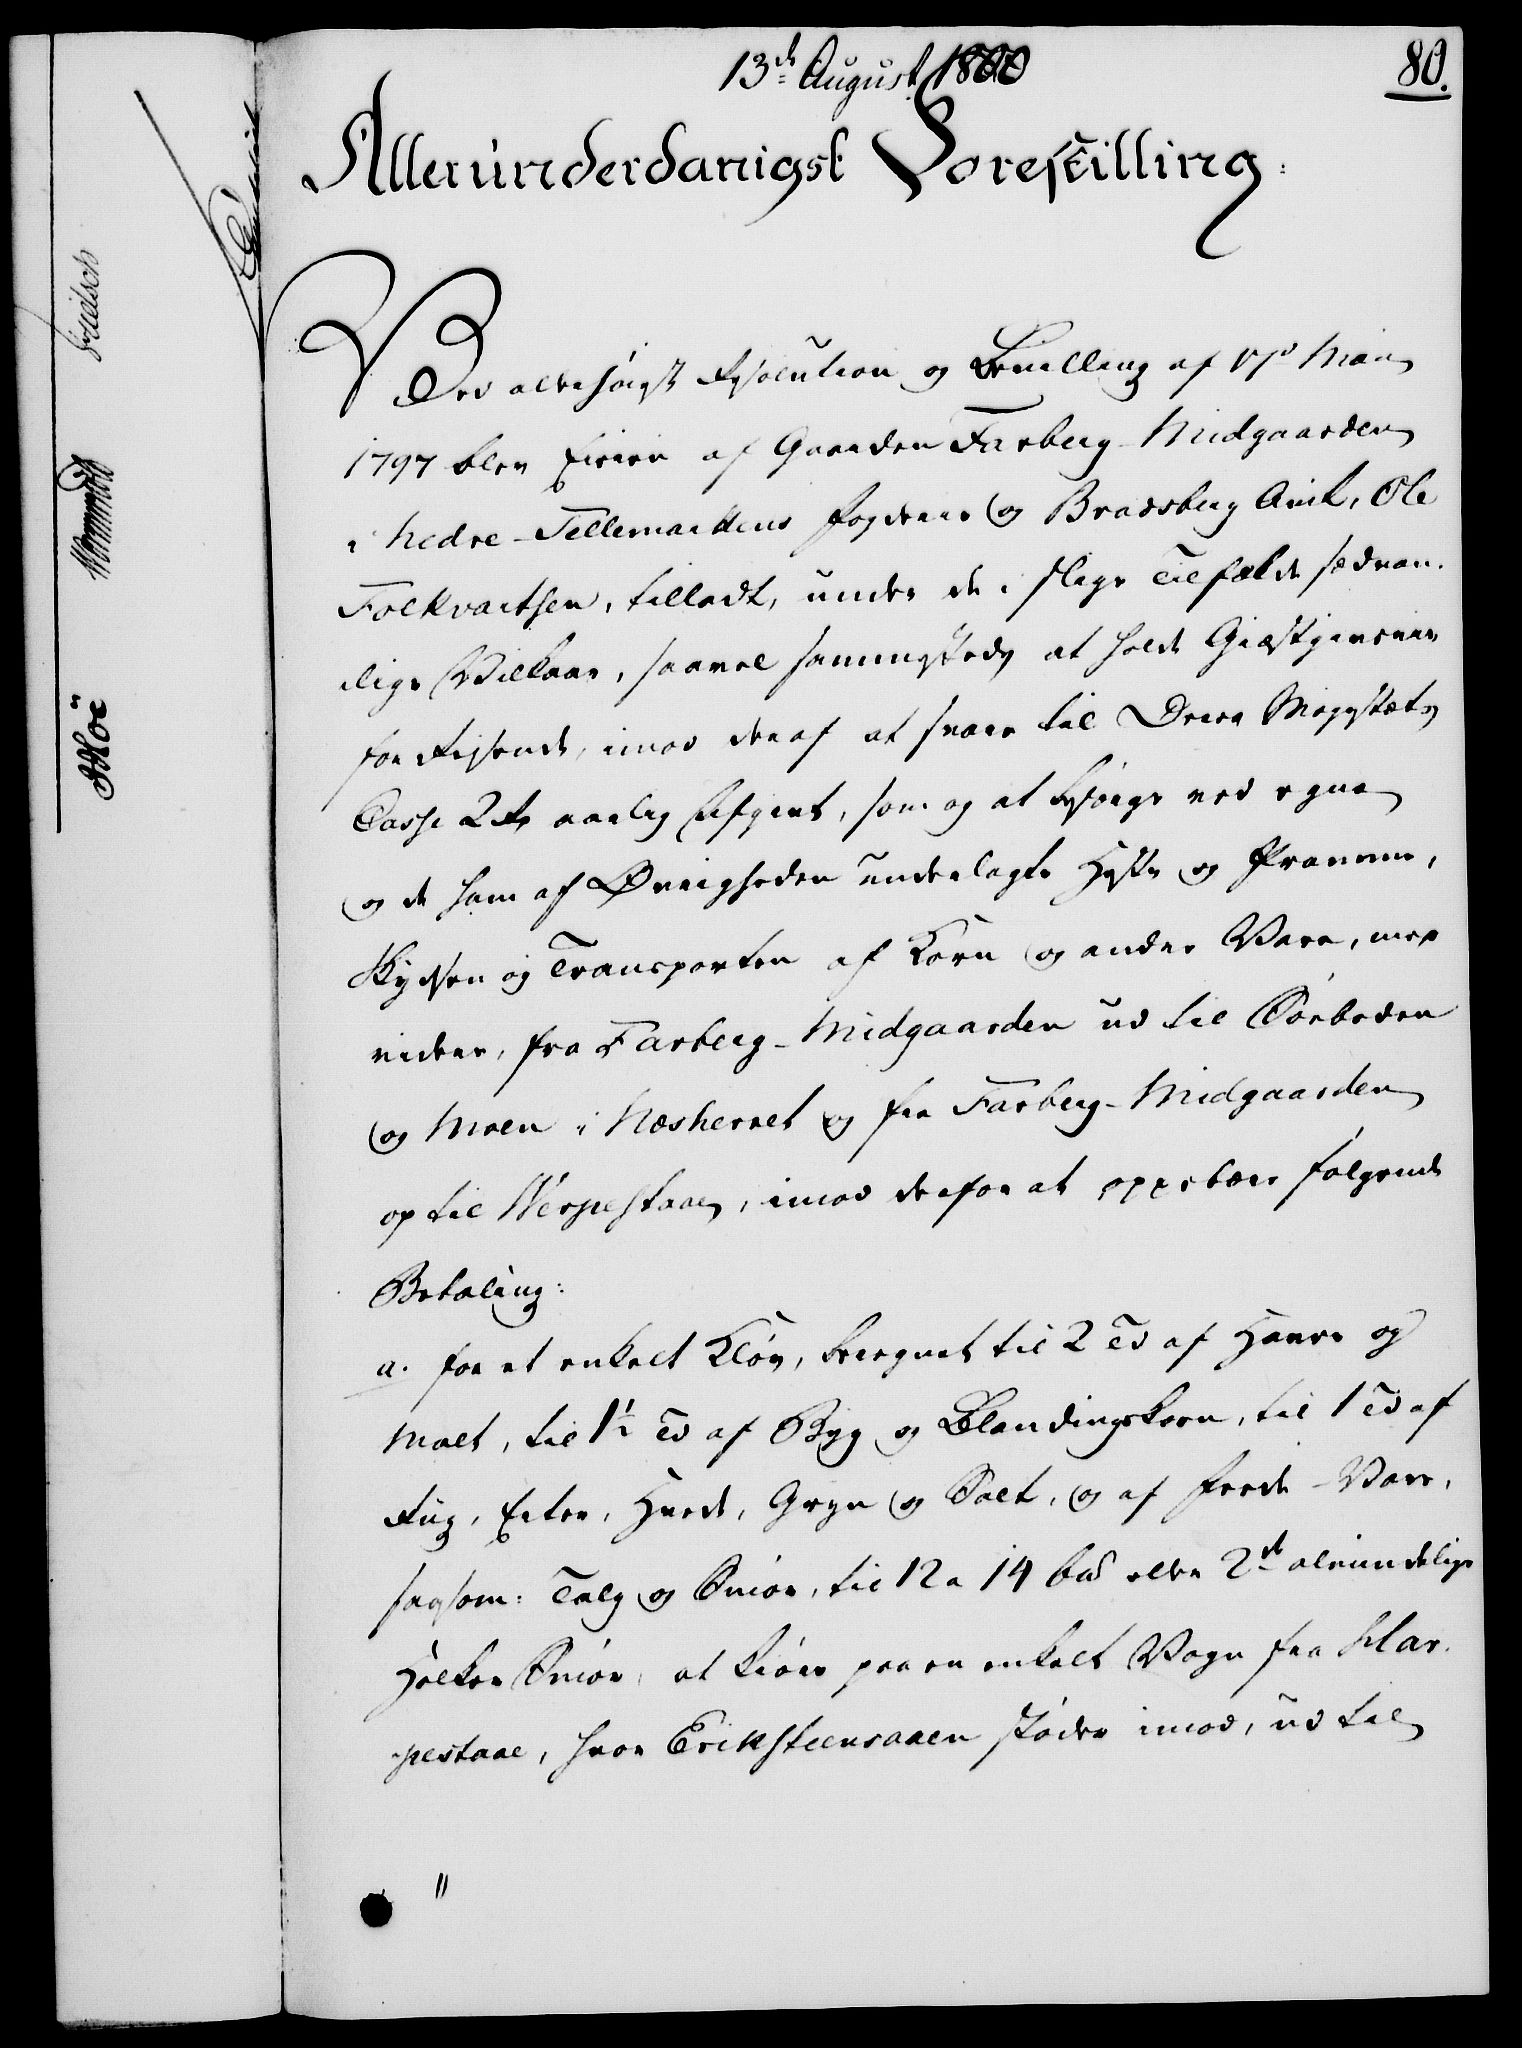 13de August 1800
80.
Allerunderdanigst Forestilling:
Ved allerhøigst Resolution og Bevilling af 17d Maii
1797 blev Eieren af Gaarden Farberg-Midgaarden
i Nedre-Tellemarkens Fogderie og Bradsberg Amt, Ole
Folkvartsen, tilladt, under de i slige Tilfælde sædvan-
lige Vilkaar, saavel sammesteds at holde Giæstgiverie
for Reisende, imod deraf at svare til Deres Majestæts
Casse 2 Rd aarlig Afgivt, som og at besørge ved egne
og de ham af Øvrigheden underlagte Heste og Pramme,
Skydsen og Transporten af Korn og andre Vare, med
videre, fra Farberg-Midgaarden ud til Søeboden
og Moen i Næsherret og fra Farberg-Midgaarden
op til Werpestaae, imod derfor at oppebære følgende
Betaling:
a. for et enkelt Kløv, beregnet til 2 Td af Havre og
Malt, til 1½ Td af Byg og Blandingskorn, til 1 Td af
Rug, Erter, Hvede, Gryn og Salt, og af feede-Vare,
saasom: Talg og Smør, til 12 a 14 bd eller 2de almindelige
Holker Smør, at kiøre paa en enkelt Vogn fra
pestaae, hvor Eriksteensaaen støder imod, ud til
"